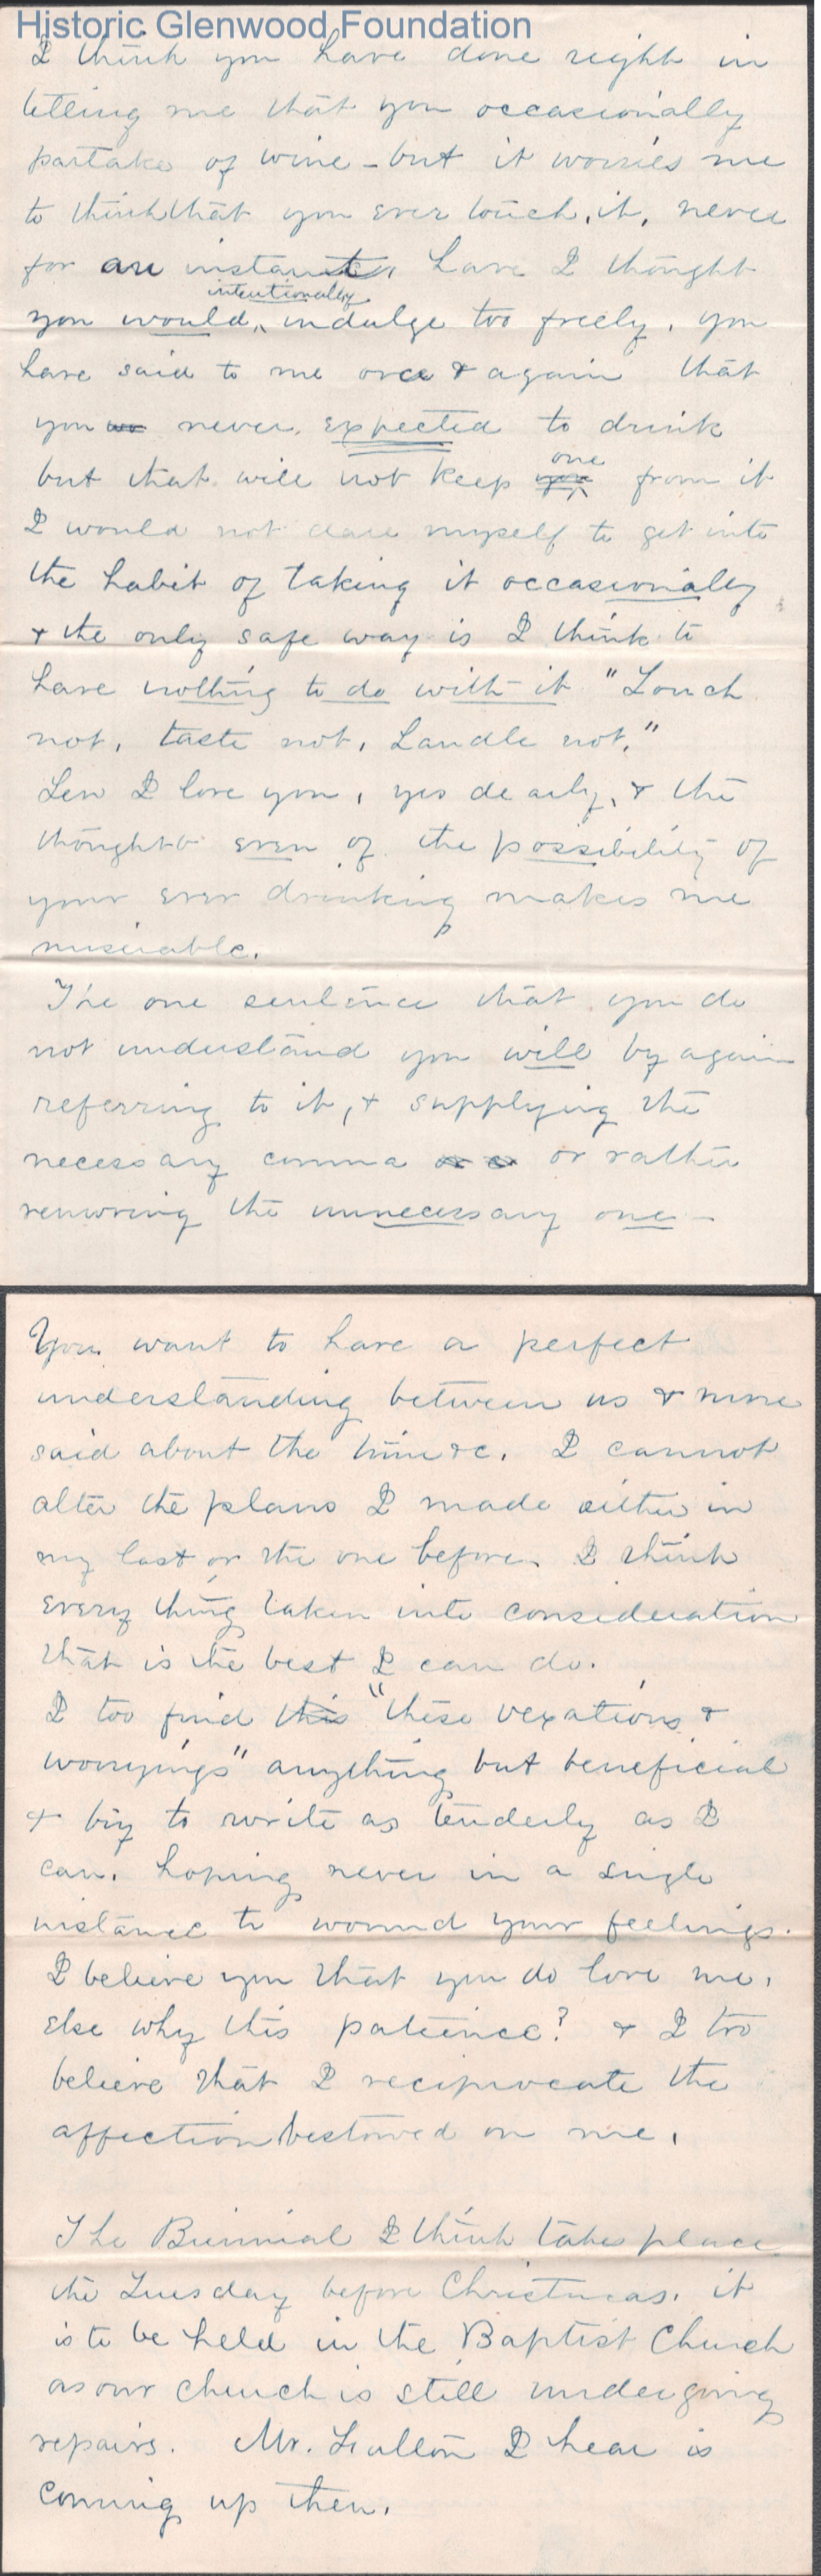 Historic Glenwood Foundation
I think you have done right in
telling me that you occasionally
partake of wine - but it worries me
to think that you ever touch it, never
for an instant have I thought
intentionally
you would, indulge too freely, you
have said to me once & again that
you never expected to drink
one
but that will not keep you from it
I would not dare myself to get into
the habit of taking it occasionally
& the only safe way is I think to
have nothing to do with it "Touch
not, taste not, handle not."
Lew I love you, yes dearly, & the
thought even of the possibility of
your ever drinking makes me
miserable.
The one sentence that you do
not understand you will by again
referring to it, & supplying the
necessary comma or rather
removing the unnecessary one -
You want to have a perfect
understanding between us & more
said about the time &c. I cannot
alter the plans I made either in
my last or the one before. I think
every thing taken into consideration
that is the best I can do.
I too find this "these vexations &
worryings" anything but beneficial
& try to write as tenderly as I
can, hoping never in a single
instance to wound your feelings.
I believe you that you do love me,
else why this patience? & I too
believe that I reciprocate the
affection bestowed on me.
The Biennial I think takes place
the Tuesday before Christmas. it
is to be held in the Baptist Church
as our church is still undergoing
repairs. Mr. Fulton I hear is
coming up then.